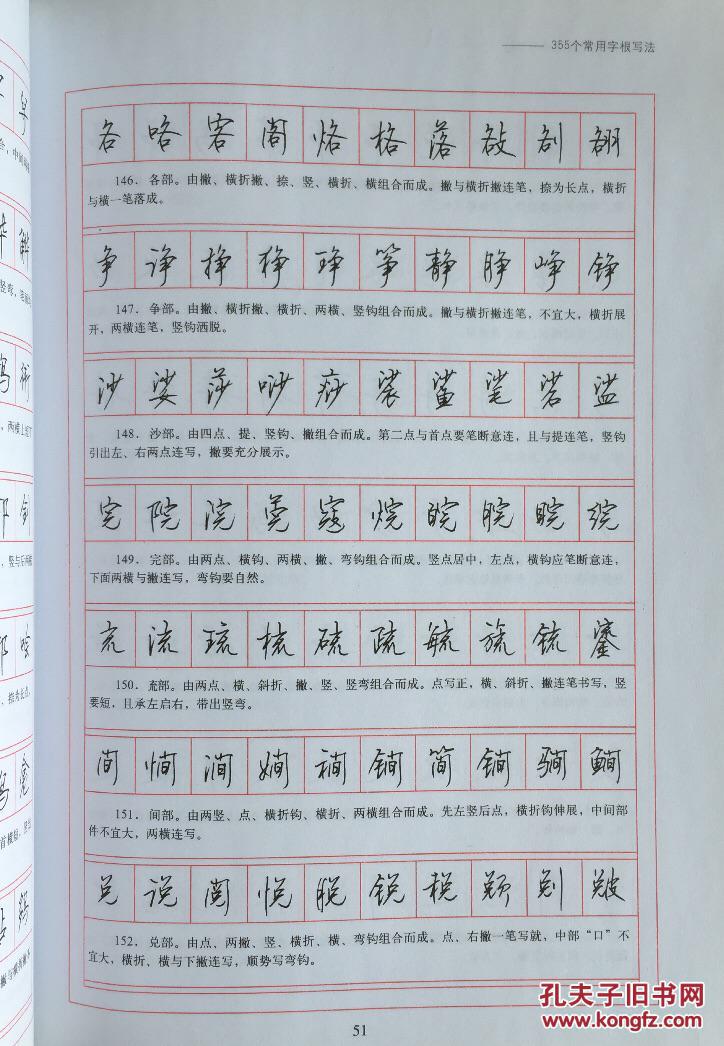 355个常用字根写法
各 咯 客 阁 烙 格 落 敋 剖
146．各部。由撇、横折撇、捺、竖、横折、横组合而成。撇与横折撇连笔，捺为长点，横折
与横一笔落成。
争 诤 挣 狰 琤 筝 静 睁 峥 铮
147．争部。由撇、横折撇、横折、两横、竖钩组合而成。撇与横折撇连笔，不宜大，横折展
开，两横连笔，竖钩洒脱。
沙 娑 莎 唦 痧 裟 鲨 毟 硰 盪
148．沙部。由四点、提、竖钩、撇组合而成。第二点与首点要笔断意连，且与提连笔，竖钩
引出左、右两点连写，撇要充分展示。
完 院 浣 莞 寇 烷 皖 脘 睆 綄
149．完部。由两点、横钩、两横、撇、弯钩组合而成。竖点居中，左点，横钩应笔断意连，
下面两横与撇连写，弯钩要自然。
㐬 流 琉 梳 硫 疏 毓 旒 锍 鎏
150．㐬部。由两点、横、斜折、撇、竖、竖弯组合而成。点写正，横、斜折、撇连笔书写，竖
要短，且承左启右，带出竖弯。
间 㦖 涧 娴 裥 锏 简 锏
151．间部。由两竖、点、横折钩、横折、两横组合而成。先左竖后点，横折钩伸展，中间部
件不宜大，两横连写。
兑 说 阅 悦 脱 锐 税
152．兑部。由点、两撇、竖、横折、横、弯钩组合而成。点、右撇一笔写就，中部“口”不
宜大，横折、横与下撇连写，顺势写弯钩。
51
孔夫子旧书网
www.kongfz.com